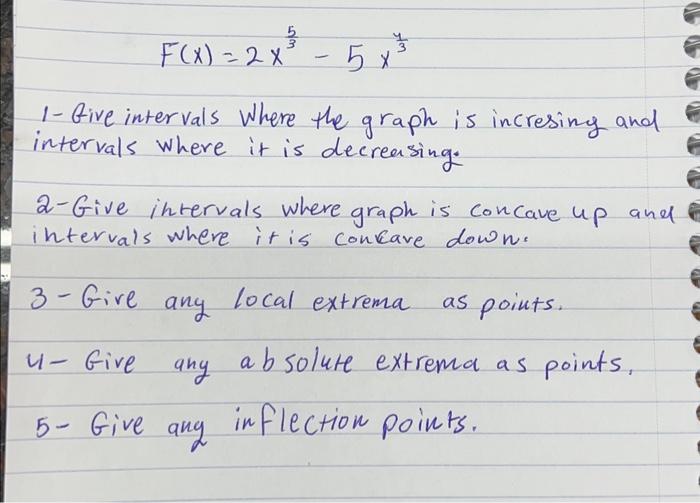 F(x) = 2x^{5/3} - 5x^{4/3}
1- Give intervals where the graph is incresing and
intervals where it is decreasing.
2- Give intervals where graph is concave up and
intervals where it is concave down.
3- Give any local extrema as points.
4- Give any absolute extrema as points.
5- Give any inflection points.